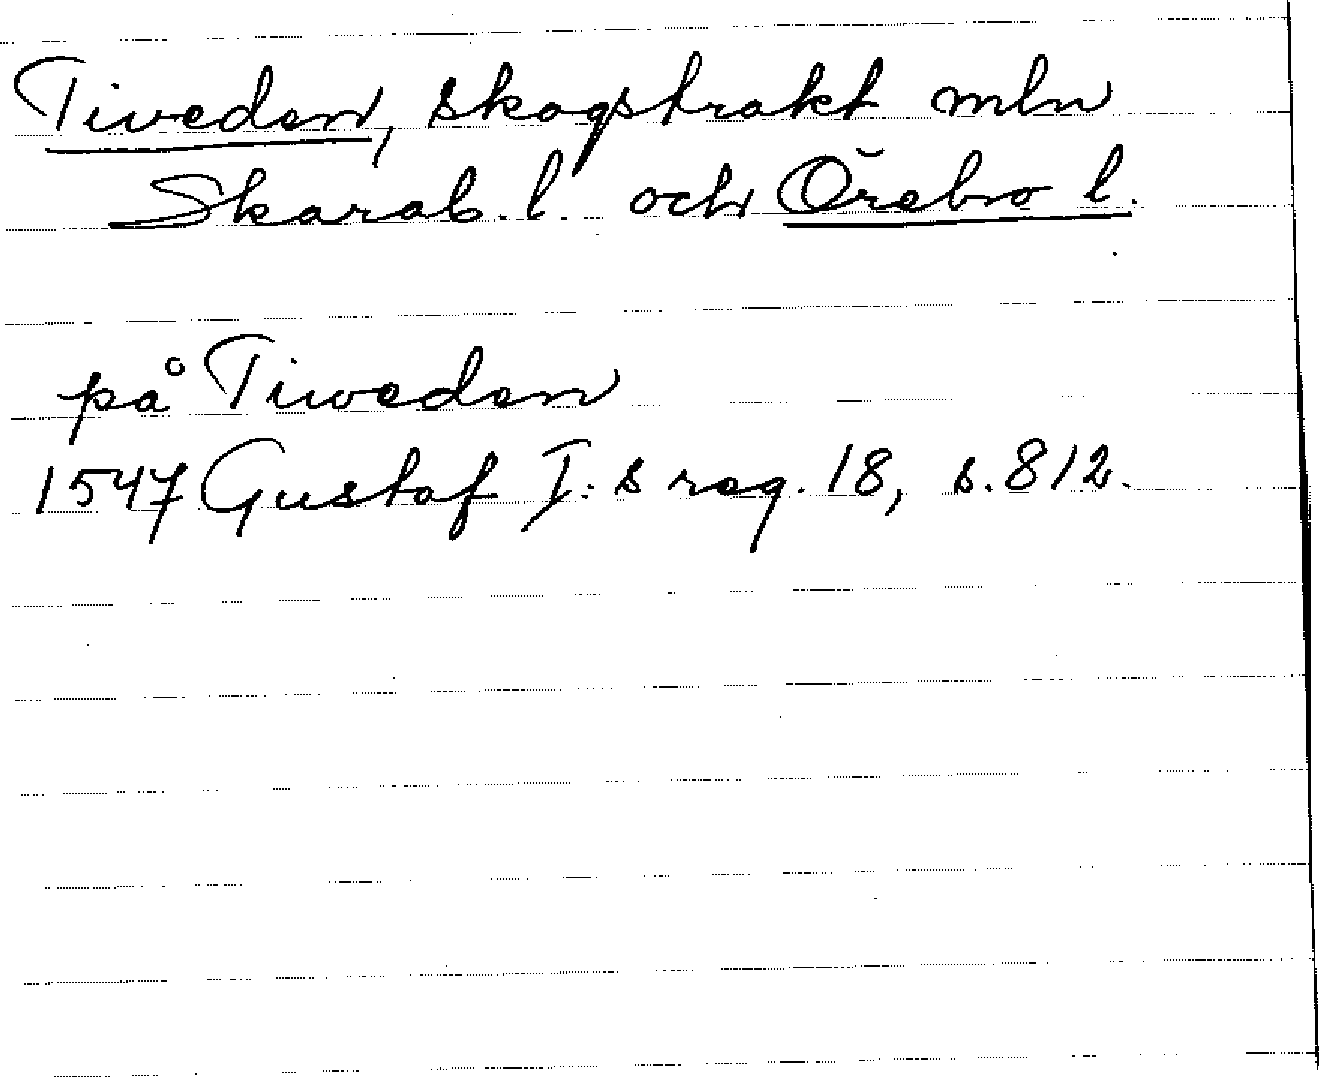 Tiveden, skogstrakt mln
Skarab. l. och Örebro l.
på Tiweden
1547 Gustaf I:s reg. 18, s. 812.